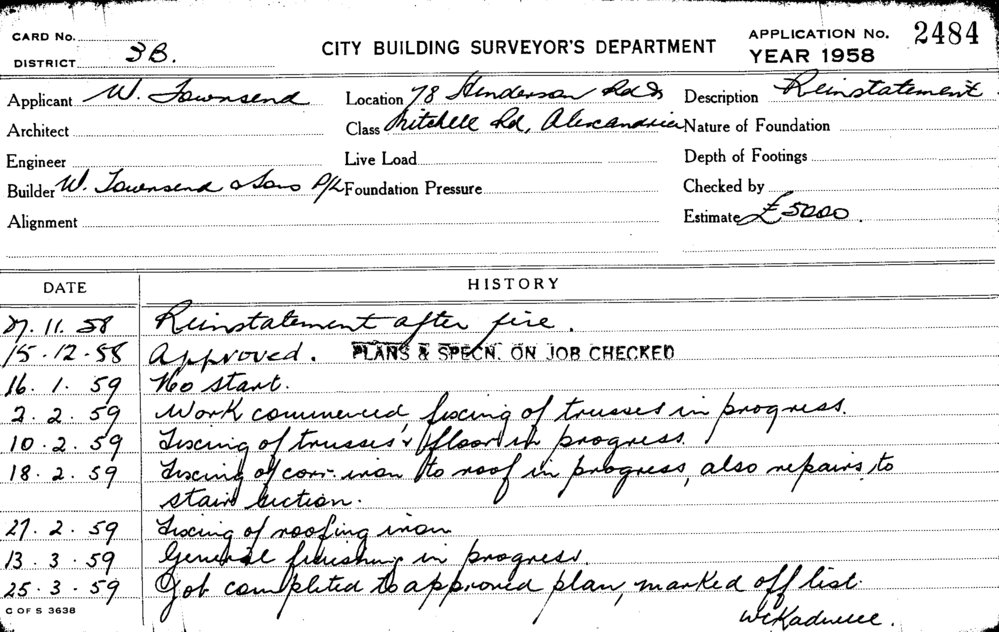 CARD No.
DISTRICT 3B.
CITY BUILDING SURVEYOR'S DEPARTMENT
APPLICATION No. 2484
YEAR 1958
Applicant W. Townsend
Location 78 Henderson Rd &
Description Reinstatement.
Architect
Class Mitchell Rd, Alexandria
Nature of Foundation
Engineer
Live Load
Depth of Footings
Builder W. Townsend & Sons P/L
Foundation Pressure
Checked by
Alignment
Estimate £5000.
DATE HISTORY
27.11.58 Reinstatement after fire.
15.12.58 Approved. PLANS & SPECN. ON JOB CHECKED
16.1.59 No start.
2.2.59 Work commenced, fixing of trusses in progress.
10.2.59 Fixing of trusses & floor in progress.
18.2.59 Fixing of corr. iron to roof in progress, also repairs to
stair section.
27.2.59 Fixing of roofing iron
13.3.59 General finishing in progress.
25.3.59 Job completed to approved plan, marked off list.
C OF S 3638